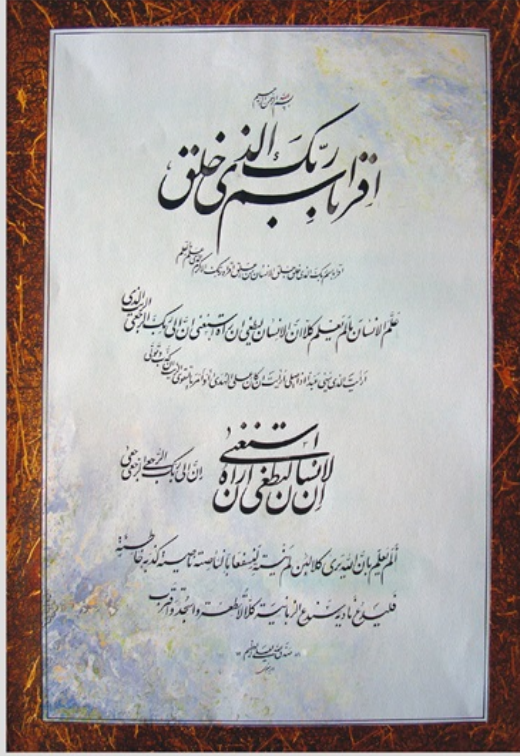 بسم الله الرحمن الرحیم
اقرا باسم ربک الذی خلق
اقرا باسم ربک الذی خلق خلق الانسان من علق اقرا و ربک الاکرم الذی علم بالقلم
علم الانسان مالم یعلم کلا ان الانسان لیطغی ان راه استغنی ان الی ربک الرجعی الذی
ارایت الذی ینهی عبدا اذا صلی ارایت ان کان علی الهدی او امر بالتقوی ارایت ان کذب و تولی
ان الانسان لیطغی ان راه استغنی
ان الی ربک الرجعی
الم یعلم بان الله یری کلا لئن لم ینته لنسفعا بالناصیة ناصیة کاذبة خاطئة
فلیدع نادیه سندع الزبانیة کلا لا تطعه و اسجد و اقترب
صدق الله العلی العظیم